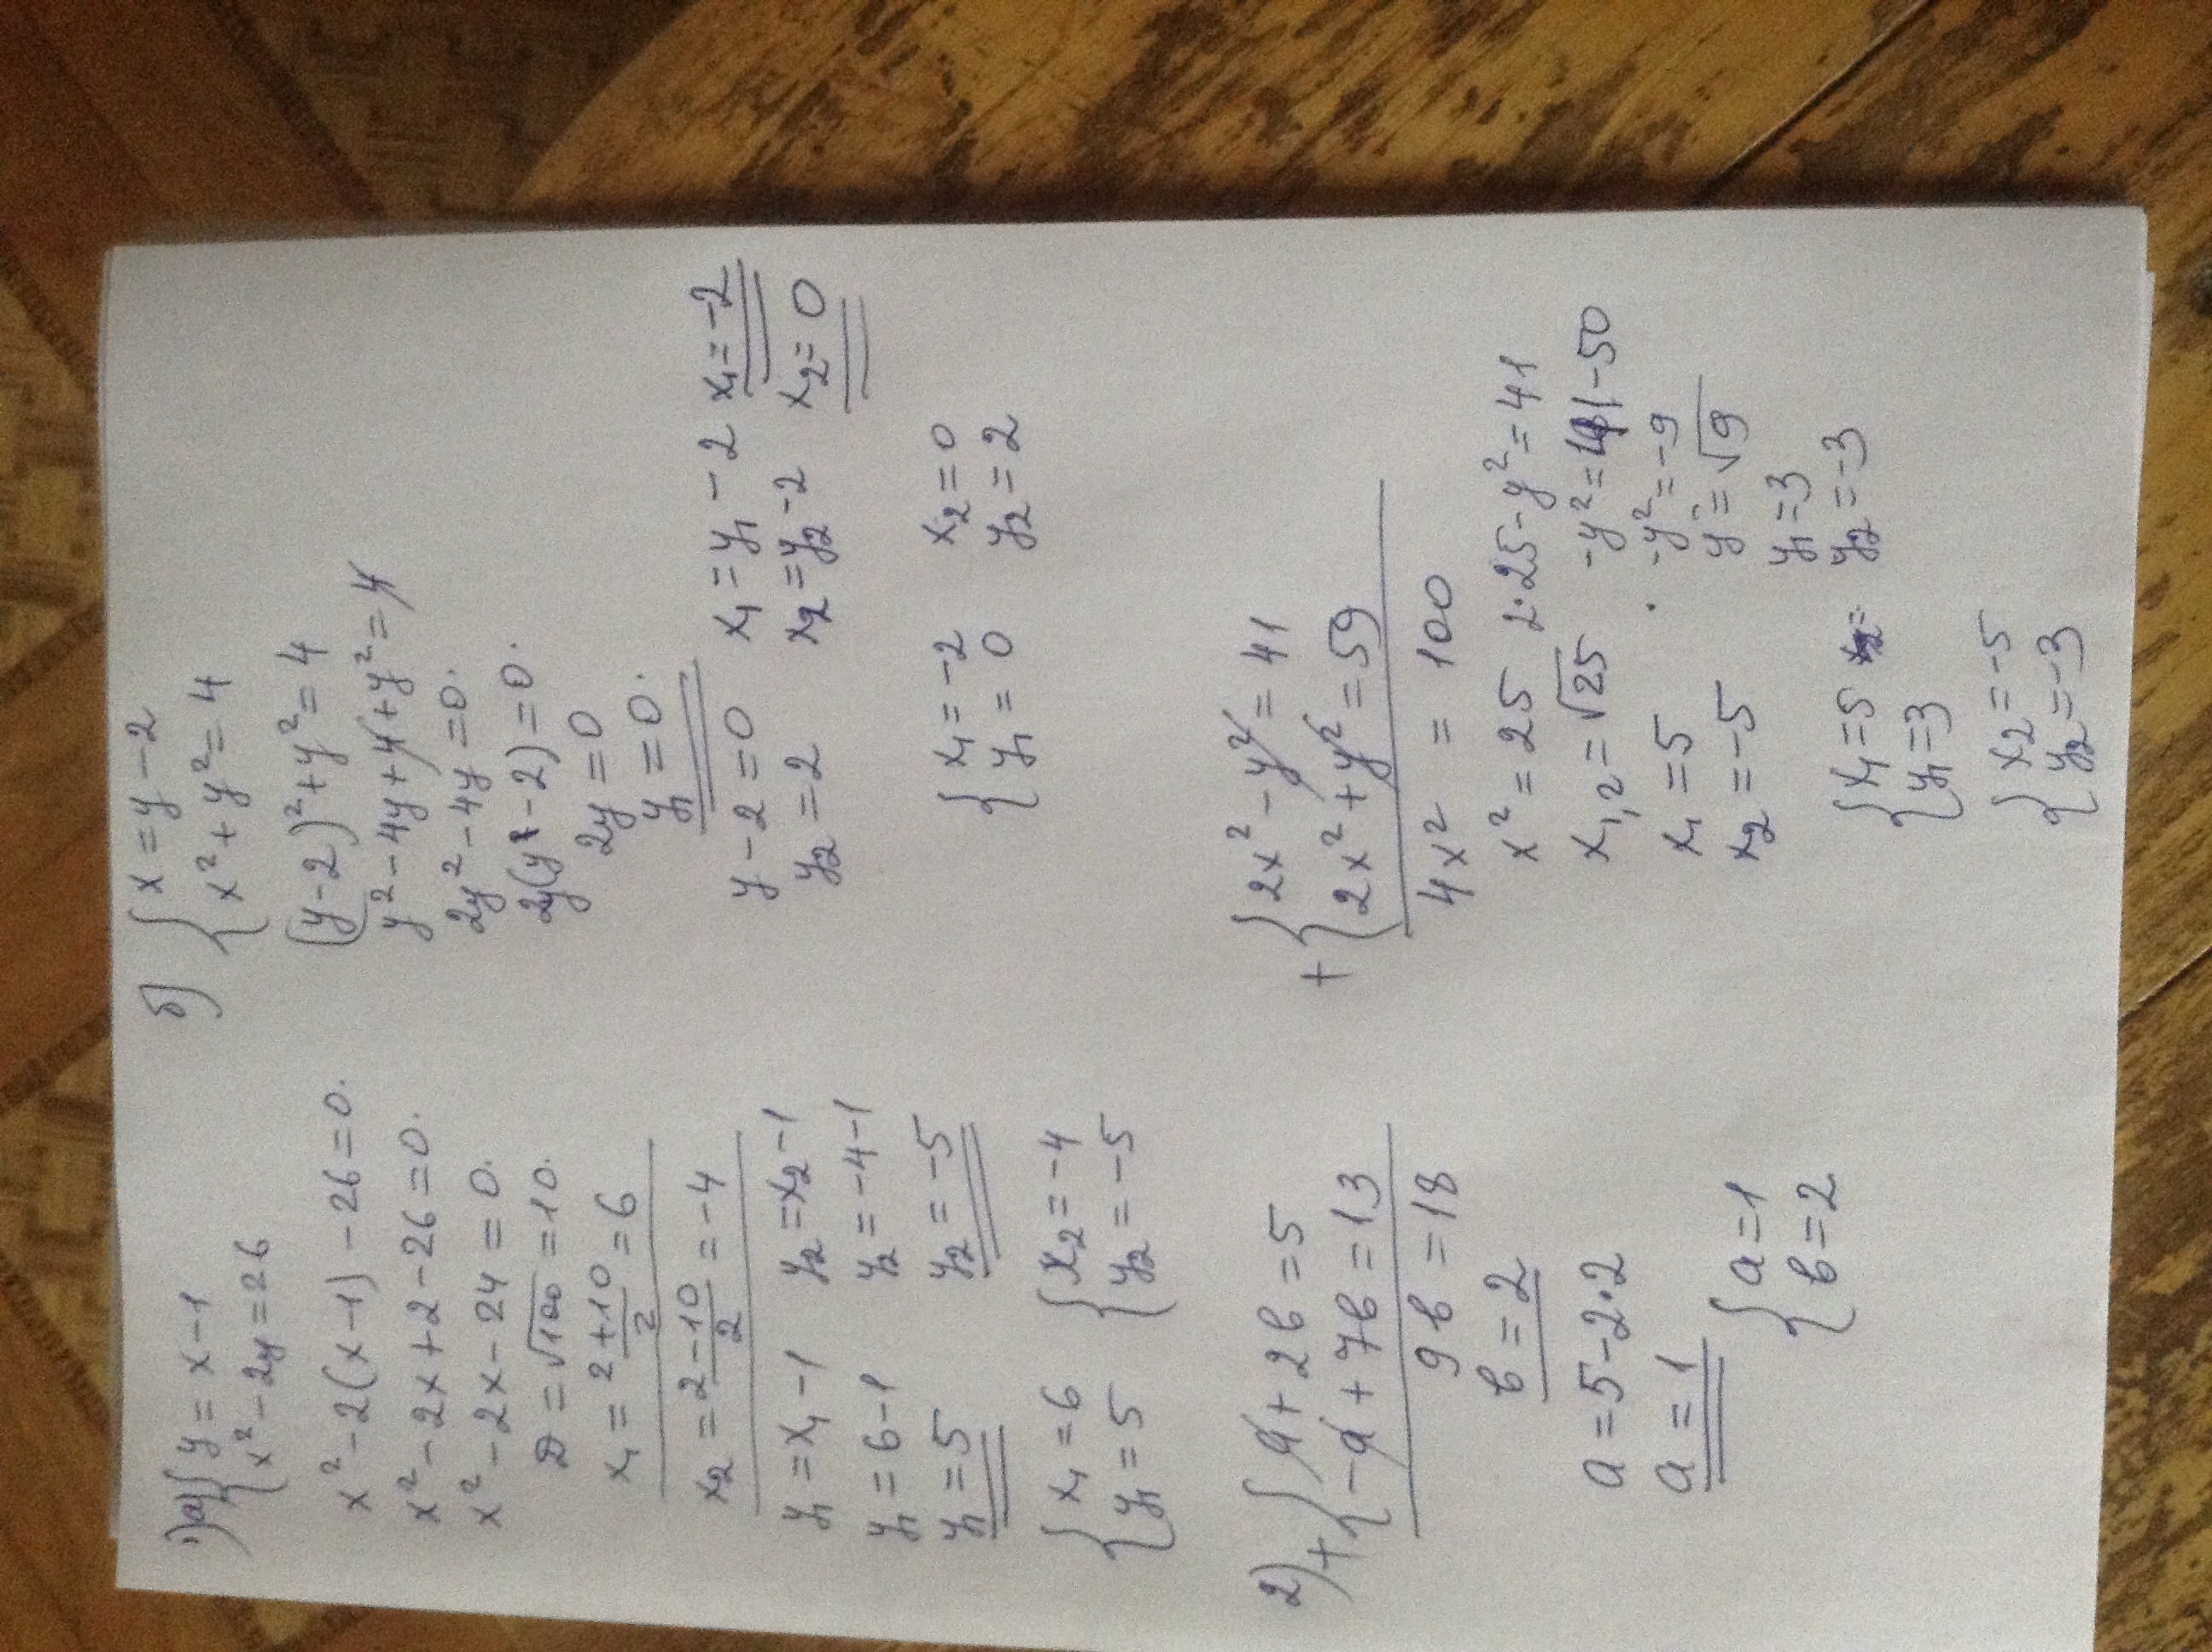 1) а) { y = x - 1
x² - 2y = 26
x² - 2(x - 1) - 26 = 0.
x² - 2x + 2 - 26 = 0.
x² - 2x - 24 = 0.
D = √100 = 10.
x₁ = (2 + 10)/2 = 6
x₂ = (2 - 10)/2 = -4
y₁ = x₁ - 1 y₂ = x₂ - 1
y₁ = 6 - 1 y₂ = -4 - 1
y₁ = 5 y₂ = -5
{ x₁ = 6 { x₂ = -4
y₁ = 5 y₂ = -5
б) { x = y - 2
x² + y² = 4
(y - 2)² + y² = 4
y² - 4y + 4 + y² = 4
2y² - 4y = 0.
2y(y - 2) = 0.
2y = 0
y₁ = 0.
y - 2 = 0 x₁ = y₁ - 2 x₁ = -2
y₂ = 2 x₂ = y₂ - 2 x₂ = 0
{ x₁ = -2 x₂ = 0
y₁ = 0 y₂ = 2
2) + { a + 2b = 5
-a + 7b = 13
9b = 18
b = 2
a = 5 - 2·2
a = 1
{ a = 1
b = 2
+ { 2x² - y² = 41
2x² + y² = 59
4x² = 100
x² = 25 2·25 - y² = 41
x₁,₂ = √25 -y² = 41 - 50
x₁ = 5 -y² = -9
x₂ = -5 y = √9
y₁ = 3
y₂ = -3
{ x₁ = 5
y₁ = 3
{ x₂ = -5
y₂ = -3